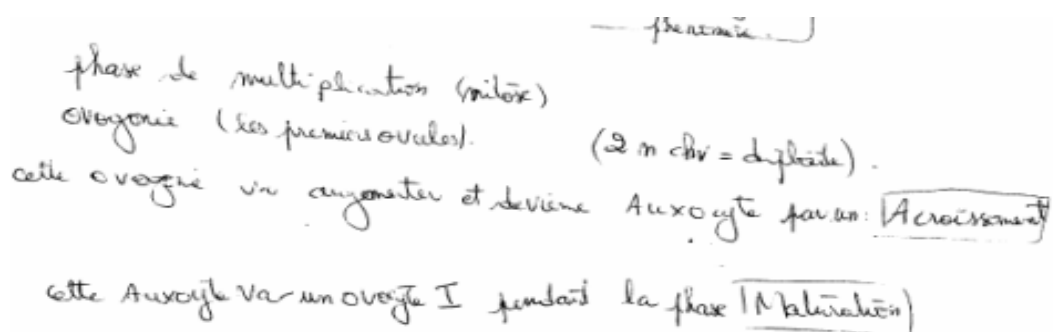 phase de multiplication (mitose)
ovogonie (les premiers ovules). (2 n chr = diploïde).
cette ovognie va augmenter et devienne Auxocyte par un: Acroissement
cette Auxocyte va un ovocyte I pendant la phase Maturation